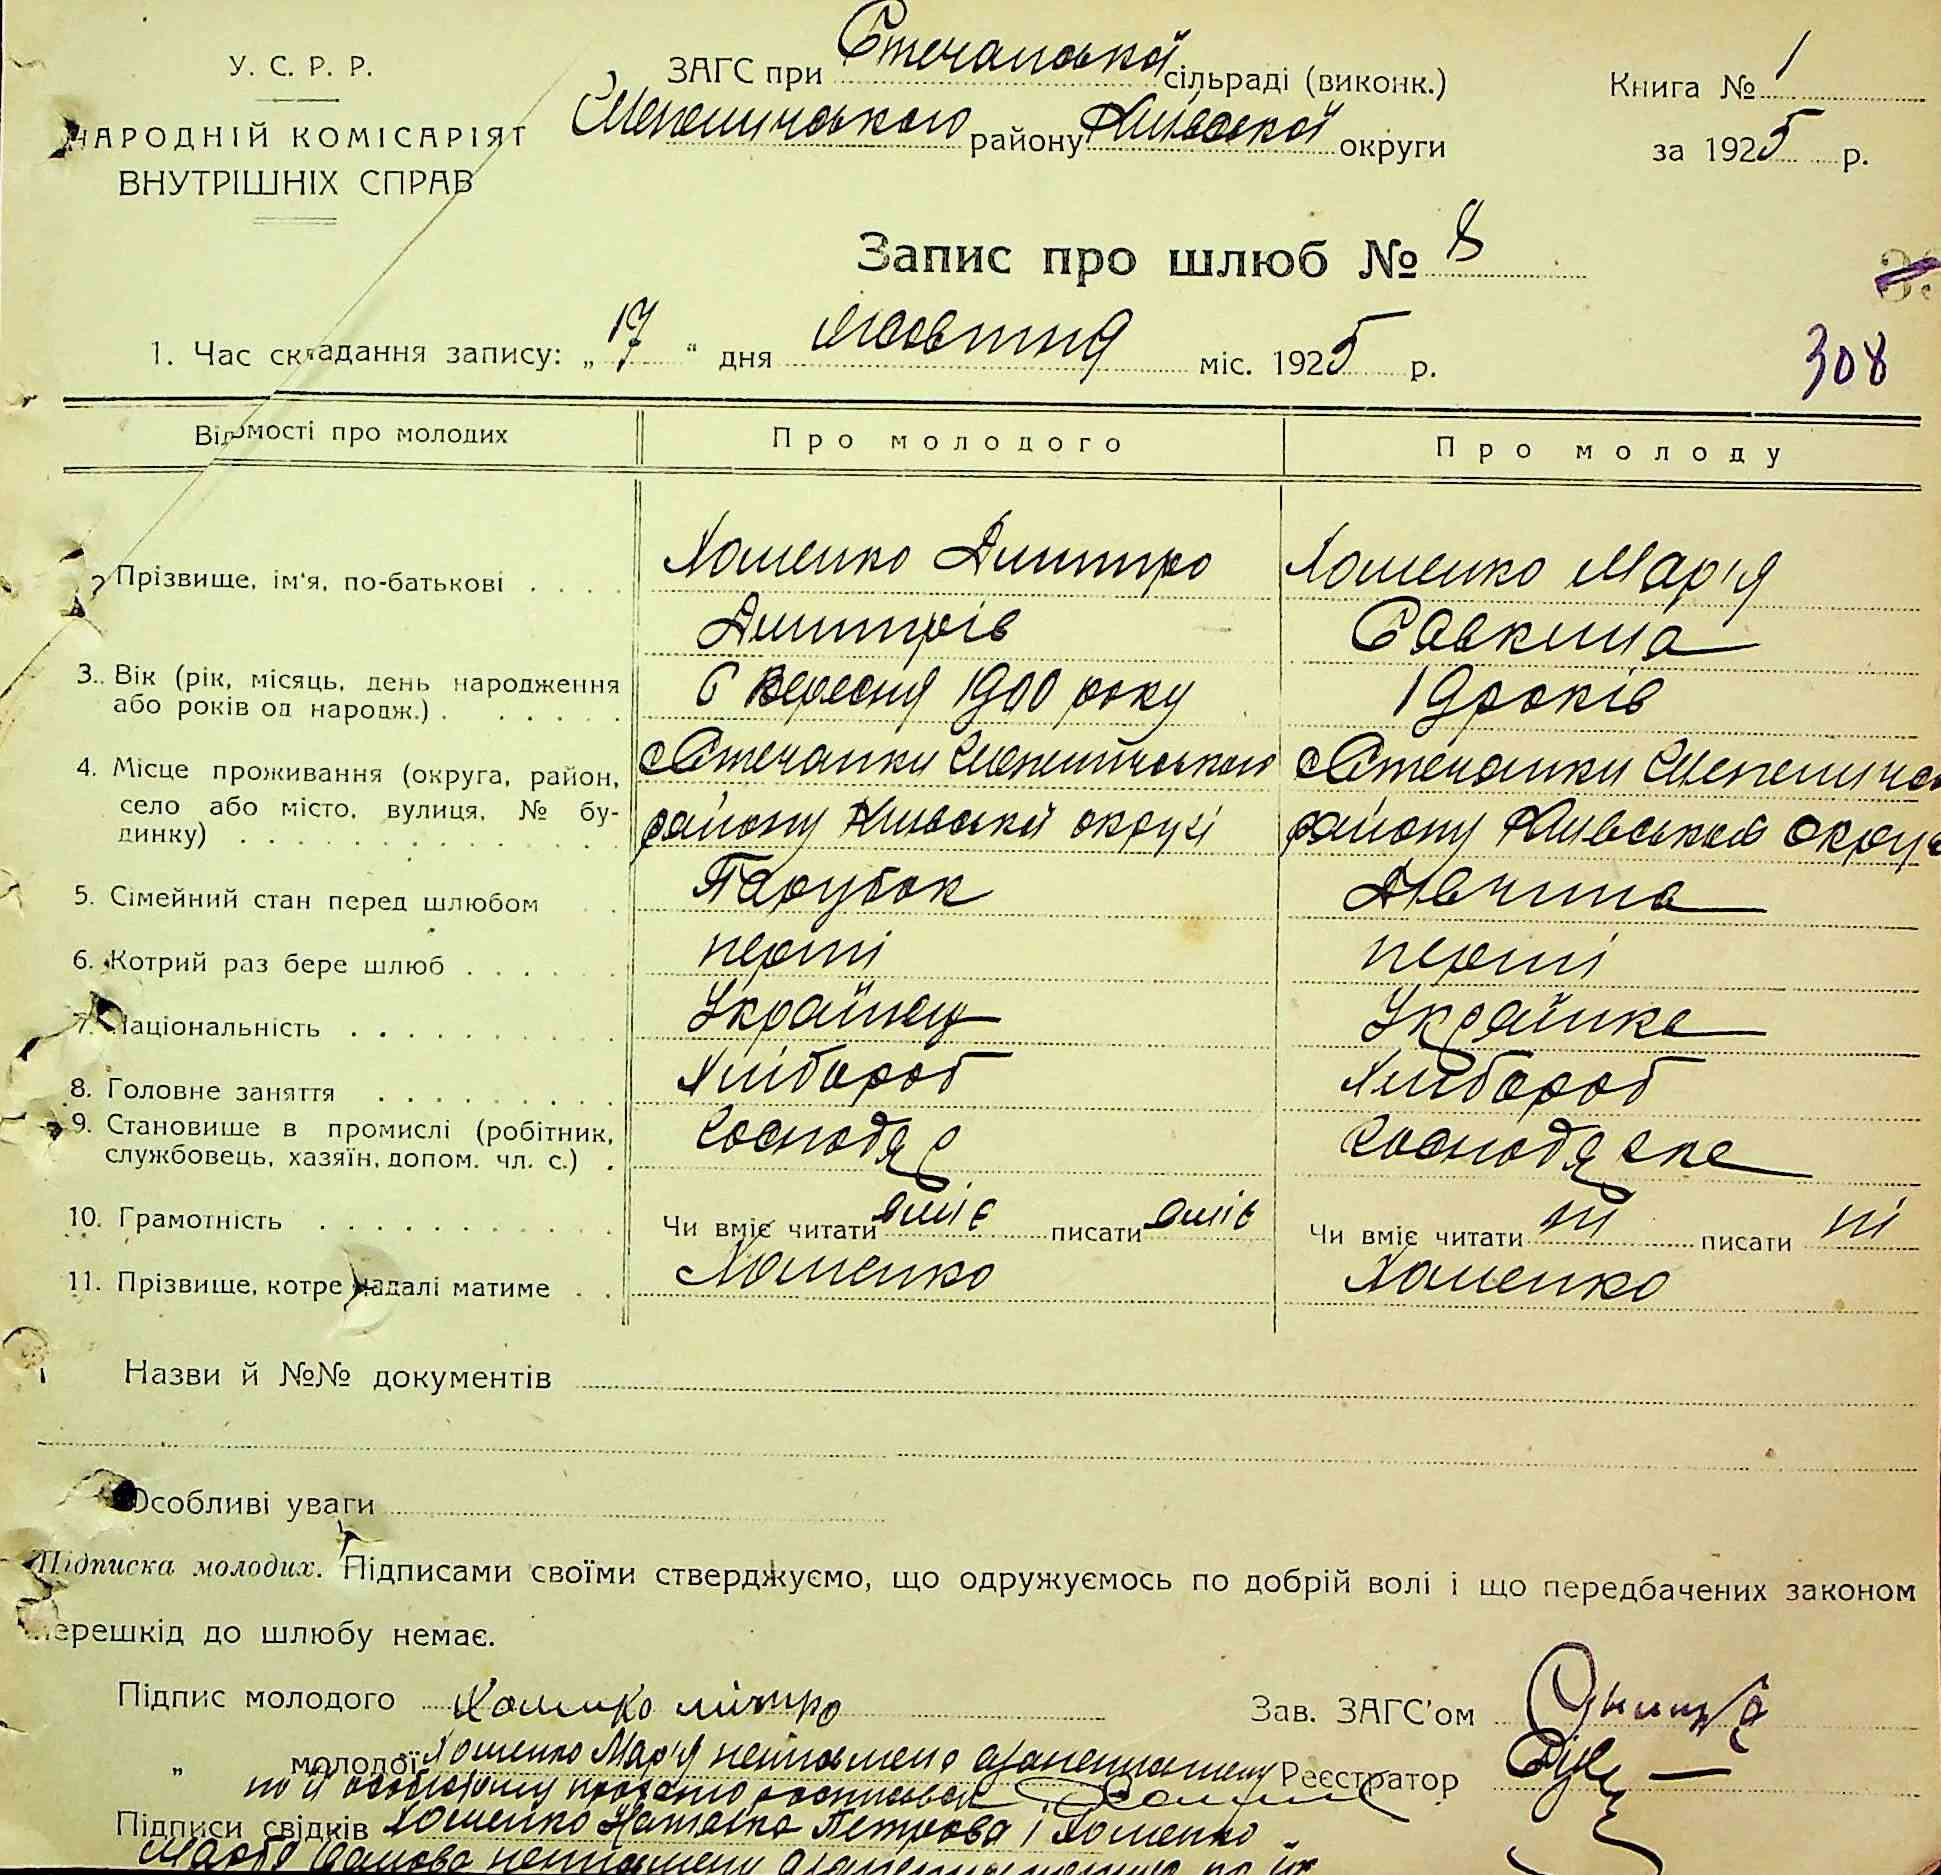 У. С. Р. Р.
НАРОДНІЙ КОМІСАРІЯТ
ВНУТРІШНІХ СПРАВ
ЗАГС при Стечанської сільраді (виконк.)
Шепелицького району Київської округи
Книга № 1
за 1925 р.
Запис про шлюб № 8
1. Час складання запису: „17“ дня жовтня міс. 1925 р.
308
Відомості про молодих
Про молодого
Про молоду
2. Прізвище, ім'я, по-батькові
Хоменко Дмитро
Дмитрів
Хоменко Мар'я
Савкина
3. Вік (рік, місяць, день народження
або років од народж.)
6 Вересня 1900 року
19 років
4. Місце проживання (округа, район,
село або місто, вулиця, № бу-
динку)
с Стечанки Шепелицького
району Київській округі
с Стечанки
району Київській округ
5. Сімейний стан перед шлюбом
Парубок
Дівчина
6. Котрий раз бере шлюб
перші
перші
7. Національність
Українец
Українка
8. Головне заняття
Хлібороб
Хлібороб
9. Становище в промислі (робітник,
службовець, хазяїн, допом. чл. с.)
Господар
Господарка
10. Грамотність
Чи вміє читати вміє писати вміє
Чи вміє читати ні писати ні
11. Прізвище, котре надалі матиме
Хоменко
Хоменко
Назви й №№ документів
Особливі уваги
Підписка молодих. Підписами своїми стверджуємо, що одружуємось по добрій волі і що передбачених законом
перешкід до шлюбу немає.
Підпис молодого
Зав. ЗАГС'ом
„ молодої Хоменко Мар'я неписмена а за неписмену
Реєстратор
по її особистому проханню росписався
Підписи свідків Хоменко Наталка Петрова і Хоменко